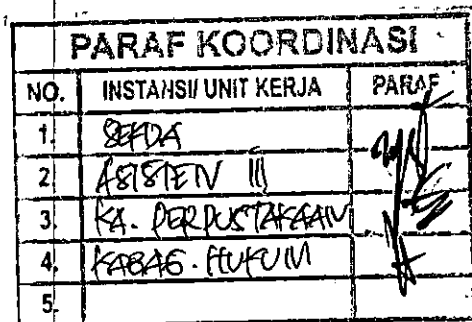 PARAF KOORDINASI
NO. INSTANSI/ UNIT KERJA PARAF
1. SEKDA
2. ASISTEN III
3. KA. PERPUSTAKAAN
4. KABAG. HUKUM
5.